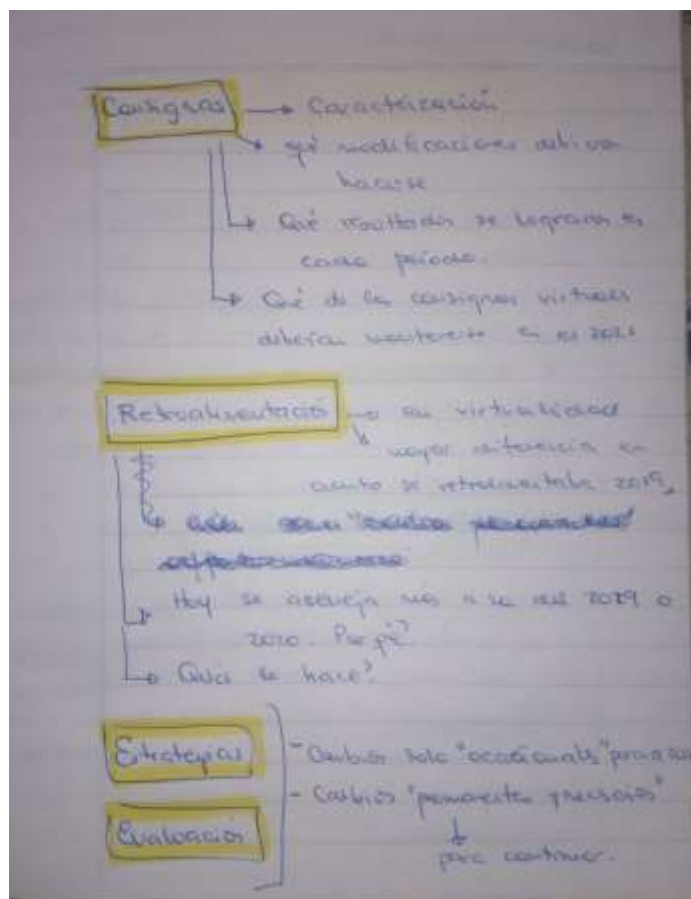 Consignas → Caracterización
→ qué modificaciones debieron
hacerse
→ Qué resultados se lograron en
cada período.
→ Qué de las consignas virtuales
deberían mantenerse en el 2021
Retroalimentación → en virtualidad
mayor diferencia en
cuanto se retroalimentaba 2019
Hoy se asemeja más a la del 2019 o
2020. Por qué?
→ se hace?
Estrategias - Cambios solo "ocasionales"
Evaluación - Cambios "permanentes y necesarios"
para continuar.